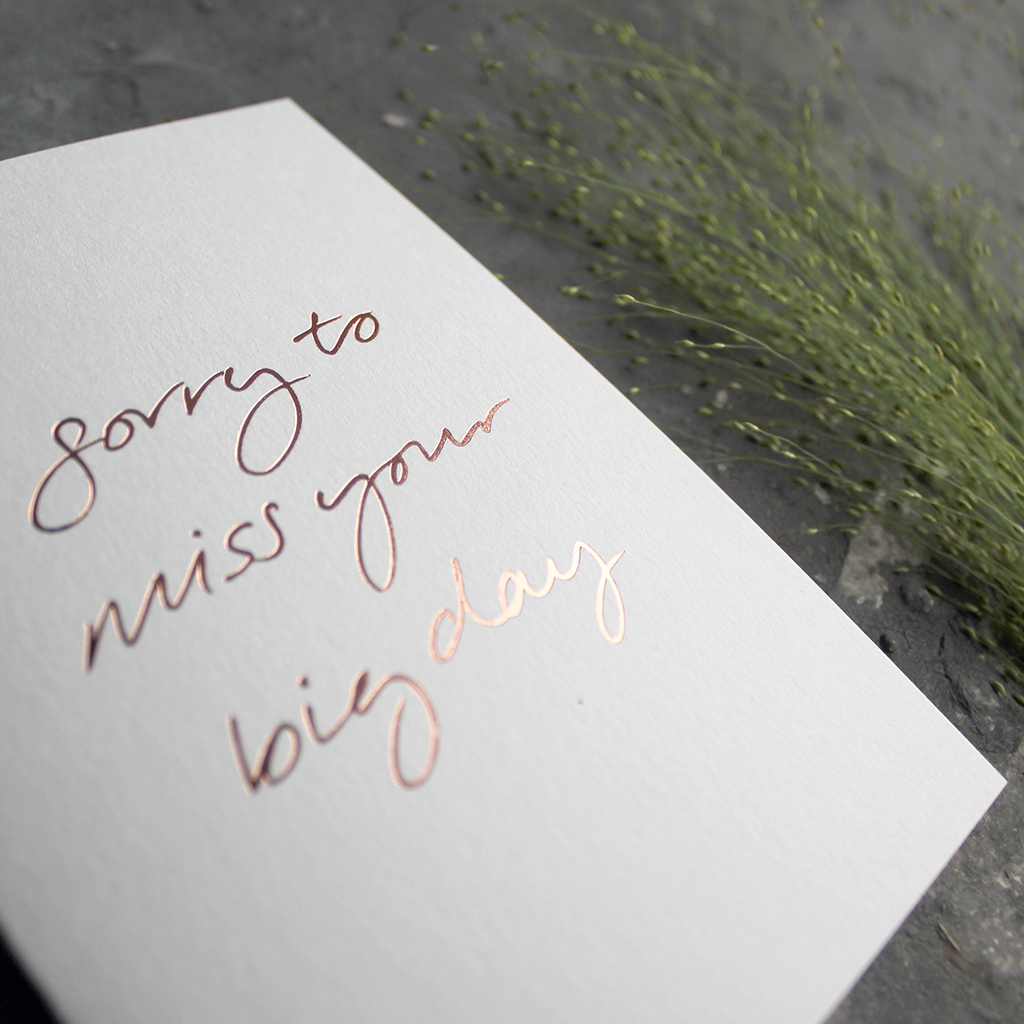 sorry to
miss your
big day